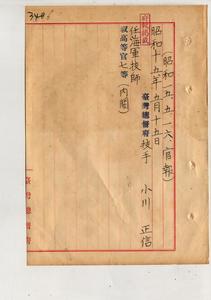 344
府報掲載
(昭和一五、五、一六、官報)
昭和十五年五月十五日
臺灣總督府技手 小川正信
任海軍技師
叙高等官七等 (内閣)
臺灣總督府